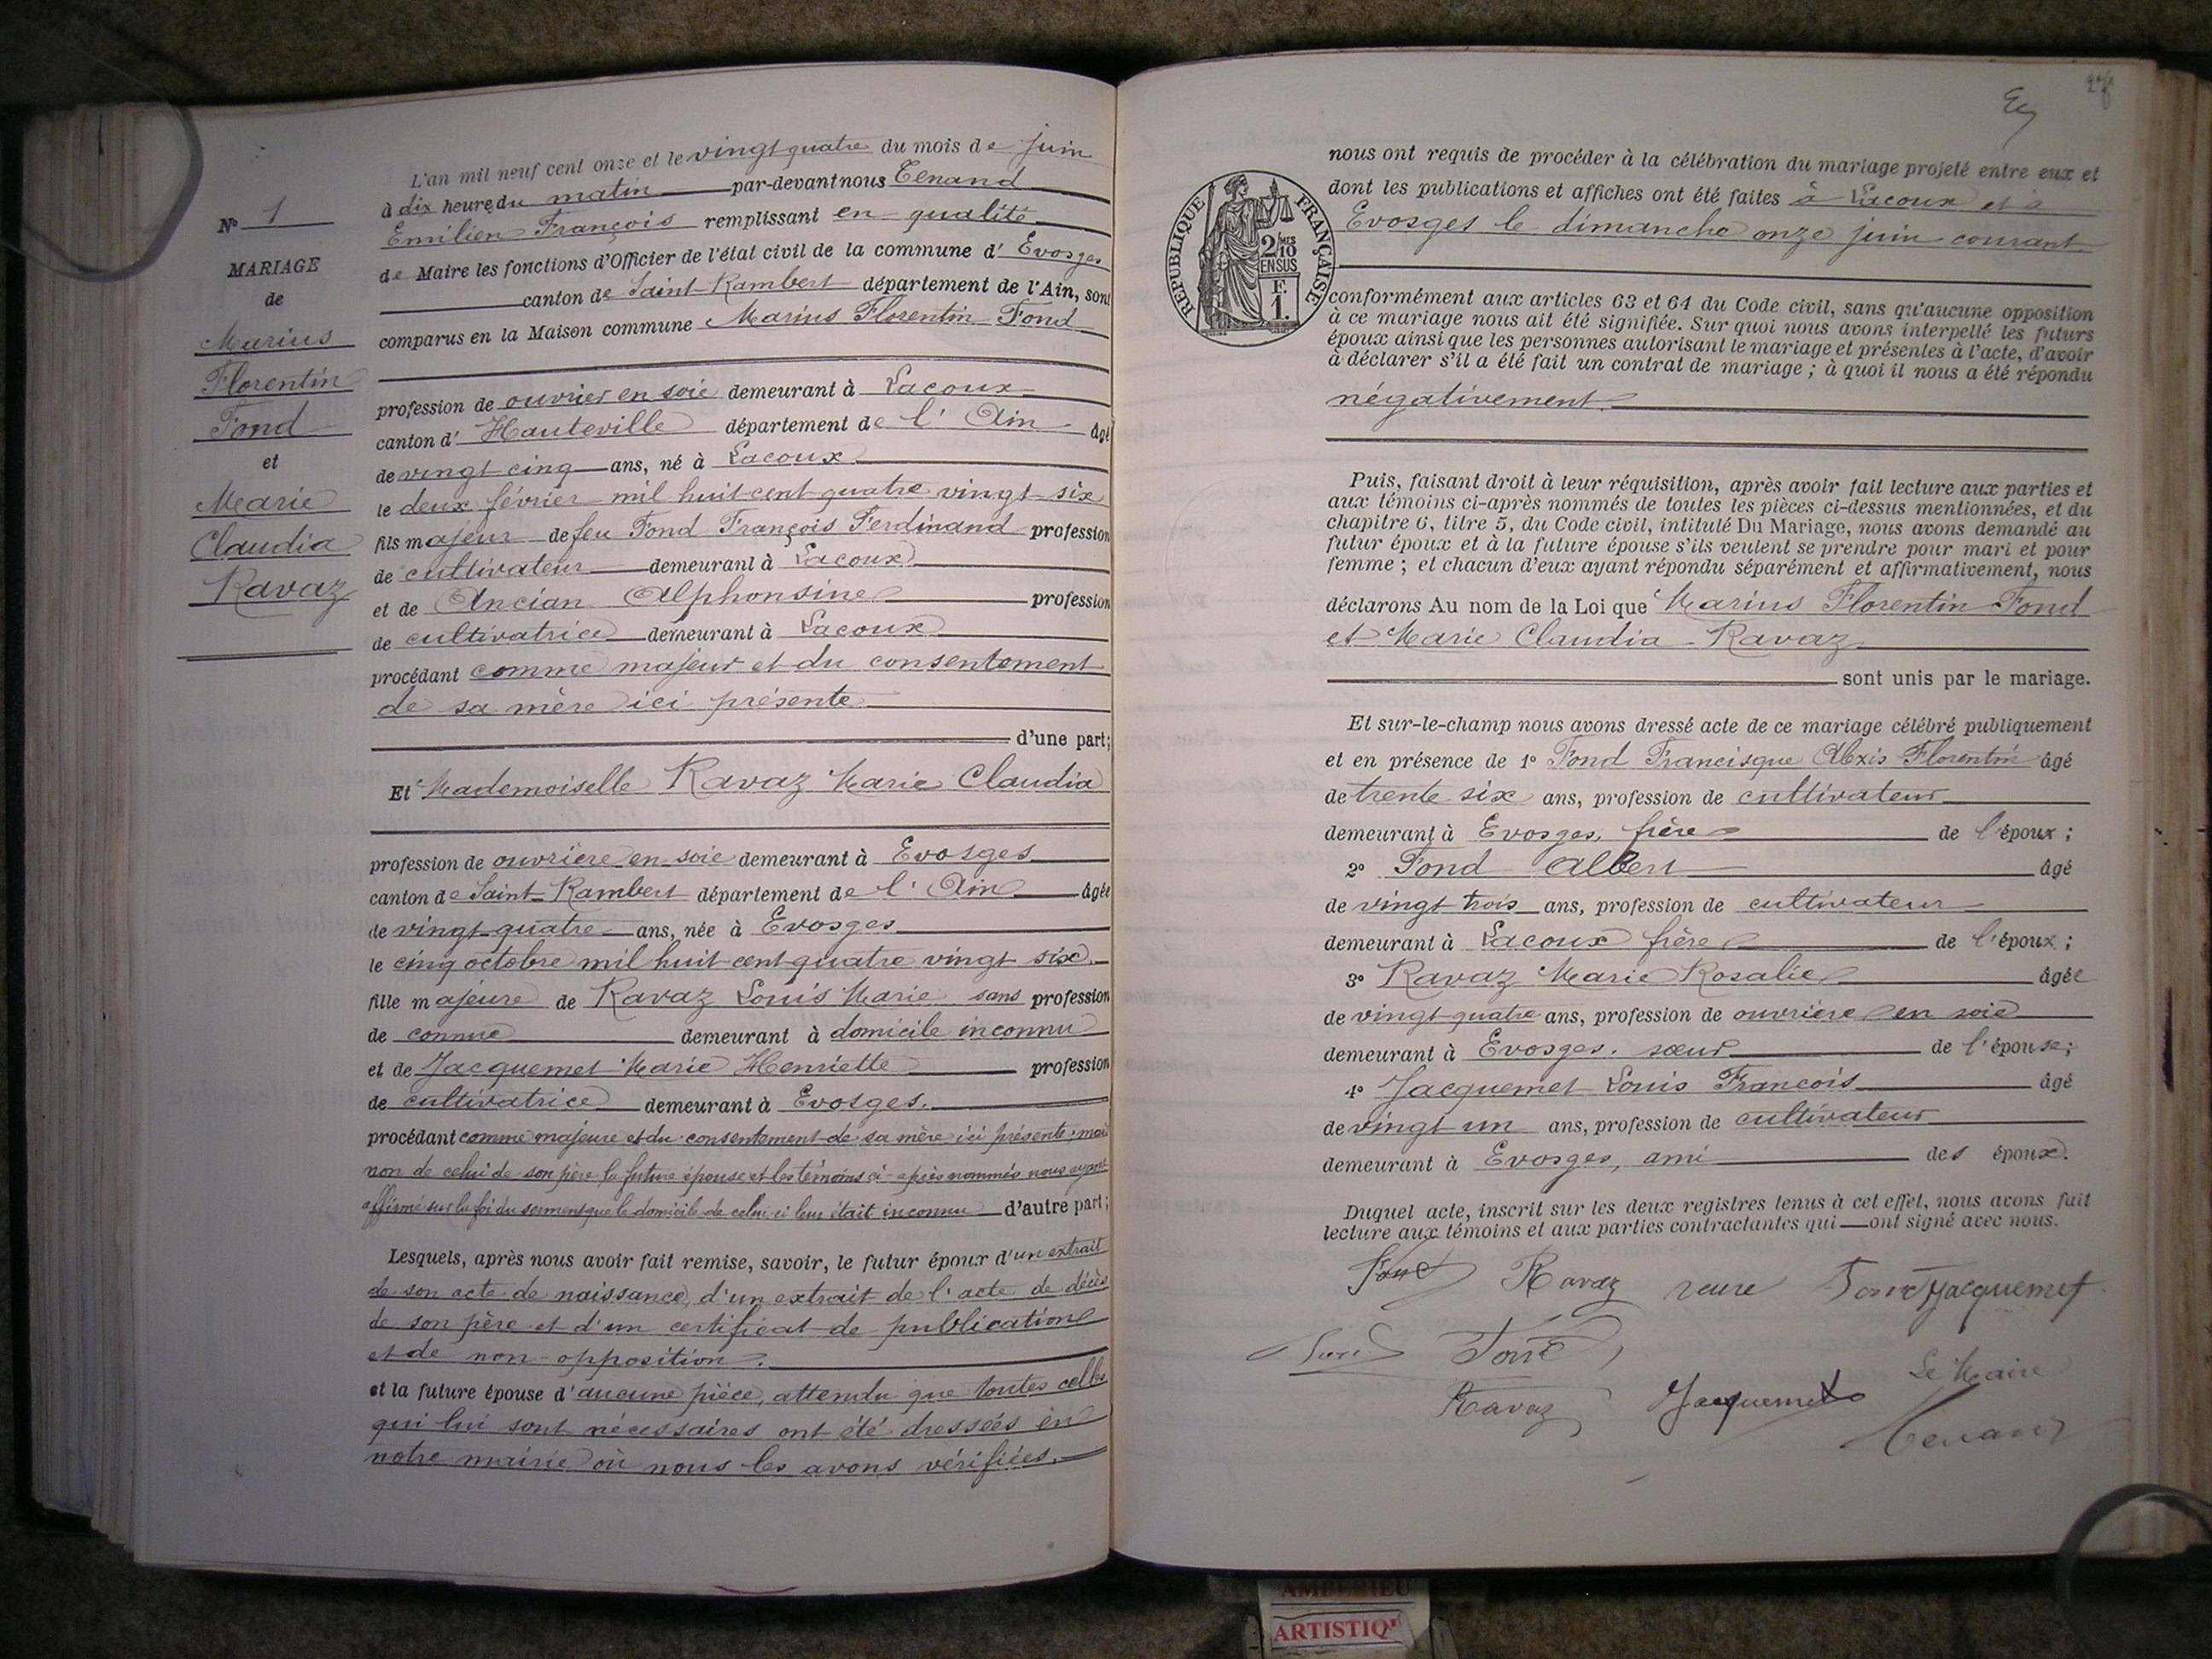 N° 1
MARIAGE
de
Marius
Florentin
Fond
et
Marie
Claudia
Ravaz
L'an mil neuf cent onze et le vingt quatre du mois de Juin
à dix heure du matin par-devant nous Tenand
Emilien François remplissant en qualité
de Maire les fonctions d'Officier de l'état civil de la commune d' Evosges
canton de Saint Rambert département de l'Ain, sont
comparus en la Maison commune Marius Florentin Fond
profession de ouvrier en soie demeurant à Lacoux
canton d' Hauteville département de l' Ain âgé
de vingt cinq ans, né à Lacoux
le deux février mil huit cent quatre vingt six
fils majeur de feu Fond François Ferdinand profession
de cultivateur demeurant à Lacoux
et de Ancian Alphonsine profession
de cultivatrice demeurant à Lacoux
procédant comme majeur et du consentement
de sa mère ici présente
d'une part;
Et Mademoiselle Ravaz Marie Claudia
profession de ouvrière en soie demeurant à Evosges
canton de Saint-Rambert département de l' Ain âgée
de vingt quatre ans, née à Evosges
le cinq octobre mil huit cent quatre vingt six.
fille majeure de Ravaz Louis Marie sans profession
de connue demeurant à domicile inconnu
et de Jacquemet Marie Henriette profession
de cultivatrice demeurant à Evosges.
procédant comme majeure et du consentement de sa mère ici présente; mais
non de celui de son père la future épouse et les témoins ci-après nommés nous ayant
affirmé sur la foi du serment que le domicile de celui-ci leur était inconnu d'autre part;
Lesquels, après nous avoir fait remise, savoir, le futur époux d'un extrait
de son acte de naissance, d'un extrait de l'acte de décès
de son père et d'un certificat de publication
et de non-opposition.
et la future épouse d'aucune pièce, attendu que toutes celles
qui lui sont nécessaires ont été dressées en
notre mairie où nous les avons vérifiées.
RÉPUBLIQUE FRANÇAISE
2/10 MES
EN SUS
F.
1.
nous ont requis de procéder à la célébration du mariage projeté entre eux et
dont les publications et affiches ont été faites à Lacoux et à
Evosges le dimanche onze juin courant
conformément aux articles 63 et 64 du Code civil, sans qu'aucune opposition
à ce mariage nous ait été signifiée. Sur quoi nous avons interpellé les futurs
époux ainsi que les personnes autorisant le mariage et présentes à l'acte, d'avoir
à déclarer s'il a été fait un contrat de mariage; à quoi il nous a été répondu
négativement.
Puis, faisant droit à leur réquisition, après avoir fait lecture aux parties et
aux témoins ci-après nommés de toutes les pièces ci-dessus mentionnées, et du
chapitre 6, titre 5, du Code civil, intitulé Du Mariage, nous avons demandé au
futur époux et à la future épouse s'ils veulent se prendre pour mari et pour
femme; et chacun d'eux ayant répondu séparément et affirmativement, nous
déclarons Au nom de la Loi que Marius Florentin Fond
et Marie Claudia Ravaz
sont unis par le mariage.
Et sur-le-champ nous avons dressé acte de ce mariage célébré publiquement
et en présence de 1° Fond Francisque Alexis Florentin âgé
de trente six ans, profession de cultivateur
demeurant à Evosges, frère de l'époux;
2° Fond Albert âgé
de vingt trois ans, profession de cultivateur
demeurant à Lacoux frère de l'époux;
3° Ravaz Marie Rosalie âgée
de vingt quatre ans, profession de ouvrière en soie
demeurant à Evosges. sœur de l'épouse;
4° Jacquemet Louis François âgé
de vingt un ans, profession de cultivateur
demeurant à Evosges, ami des époux.
Duquel acte, inscrit sur les deux registres tenus à cet effet, nous avons fait
lecture aux témoins et aux parties contractantes qui — ont signé avec nous.
Fond Ravaz veuve Fond Jacquemet
Fond Fond
Le Maire
Ravaz Jacquemet
Tenand
AMBERIEU
ARTISTIQ